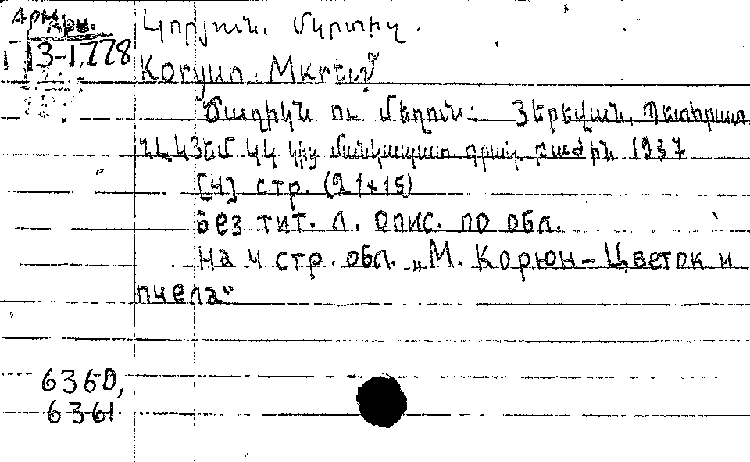 Арм. Арм.
Կորյուն, Մկրտիչ.
Г 13-1,778
Корyun Mkrtič
Ծաղիկն ու մեղուն: Յերեվան, Պետհրատ
ՀԼԿՅԵՄ ԿԿ կից մանկապատ գրակ. բաժին 1937
[4] стр. (21×15)
Без тит. л. опис. по обл.
На 4 стр. обл. „М. Корюн – Цветок и
пчела“
6360,
6361